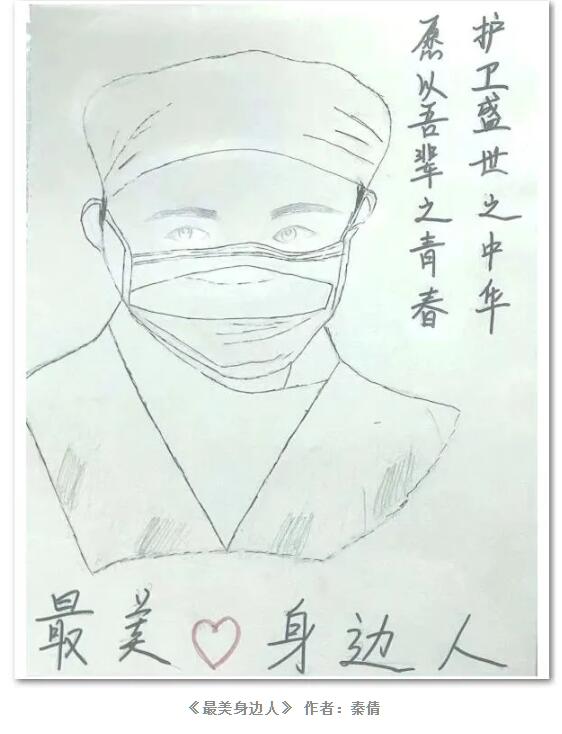 愿以吾辈之青春
护卫盛世之中华
最美身边人
《最美身边人》 作者：秦倩